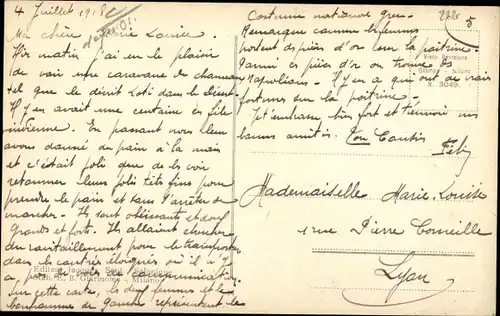 4 Juillet 1918
Ma chère Marie Louise
Hier matin j'ai eu le plaisir
de voir une caravane de chameau
tel que le décrit Loti dans le Désert
Il y en avait une centaine en file
indienne. En passant nous leur
avons donné du pain à la main
et c'était joli que de les voir
retourner leurs jolis têtes fines pour
prendre le pain et sans s'arrêter de
marcher. Ils sont obéissants et
grands et forts. Ils allaient chercher
du ravitaillement pour le transporter
dans les contrées éloignées où il n'y
a pas de voies de communication.
Sur cette carte, les deux femmes et le
bonhomme de gauche représentent le
Costume national grec
Remarque comme les femmes
portent des pièces d'or sur la poitrine
Parmi ces pièces d'or on trouve des
Napoléons. Il y en a qui ont de vrais
fortunes sur la poitrine.
Je t'embrasse bien fort et t'envoie mes
bonnes amitiés. Ton Cousin
Mademoiselle Marie Louise
1 rue Pierre Corneille
Lyon
3049.
Editeur Jacques Saul
Milano